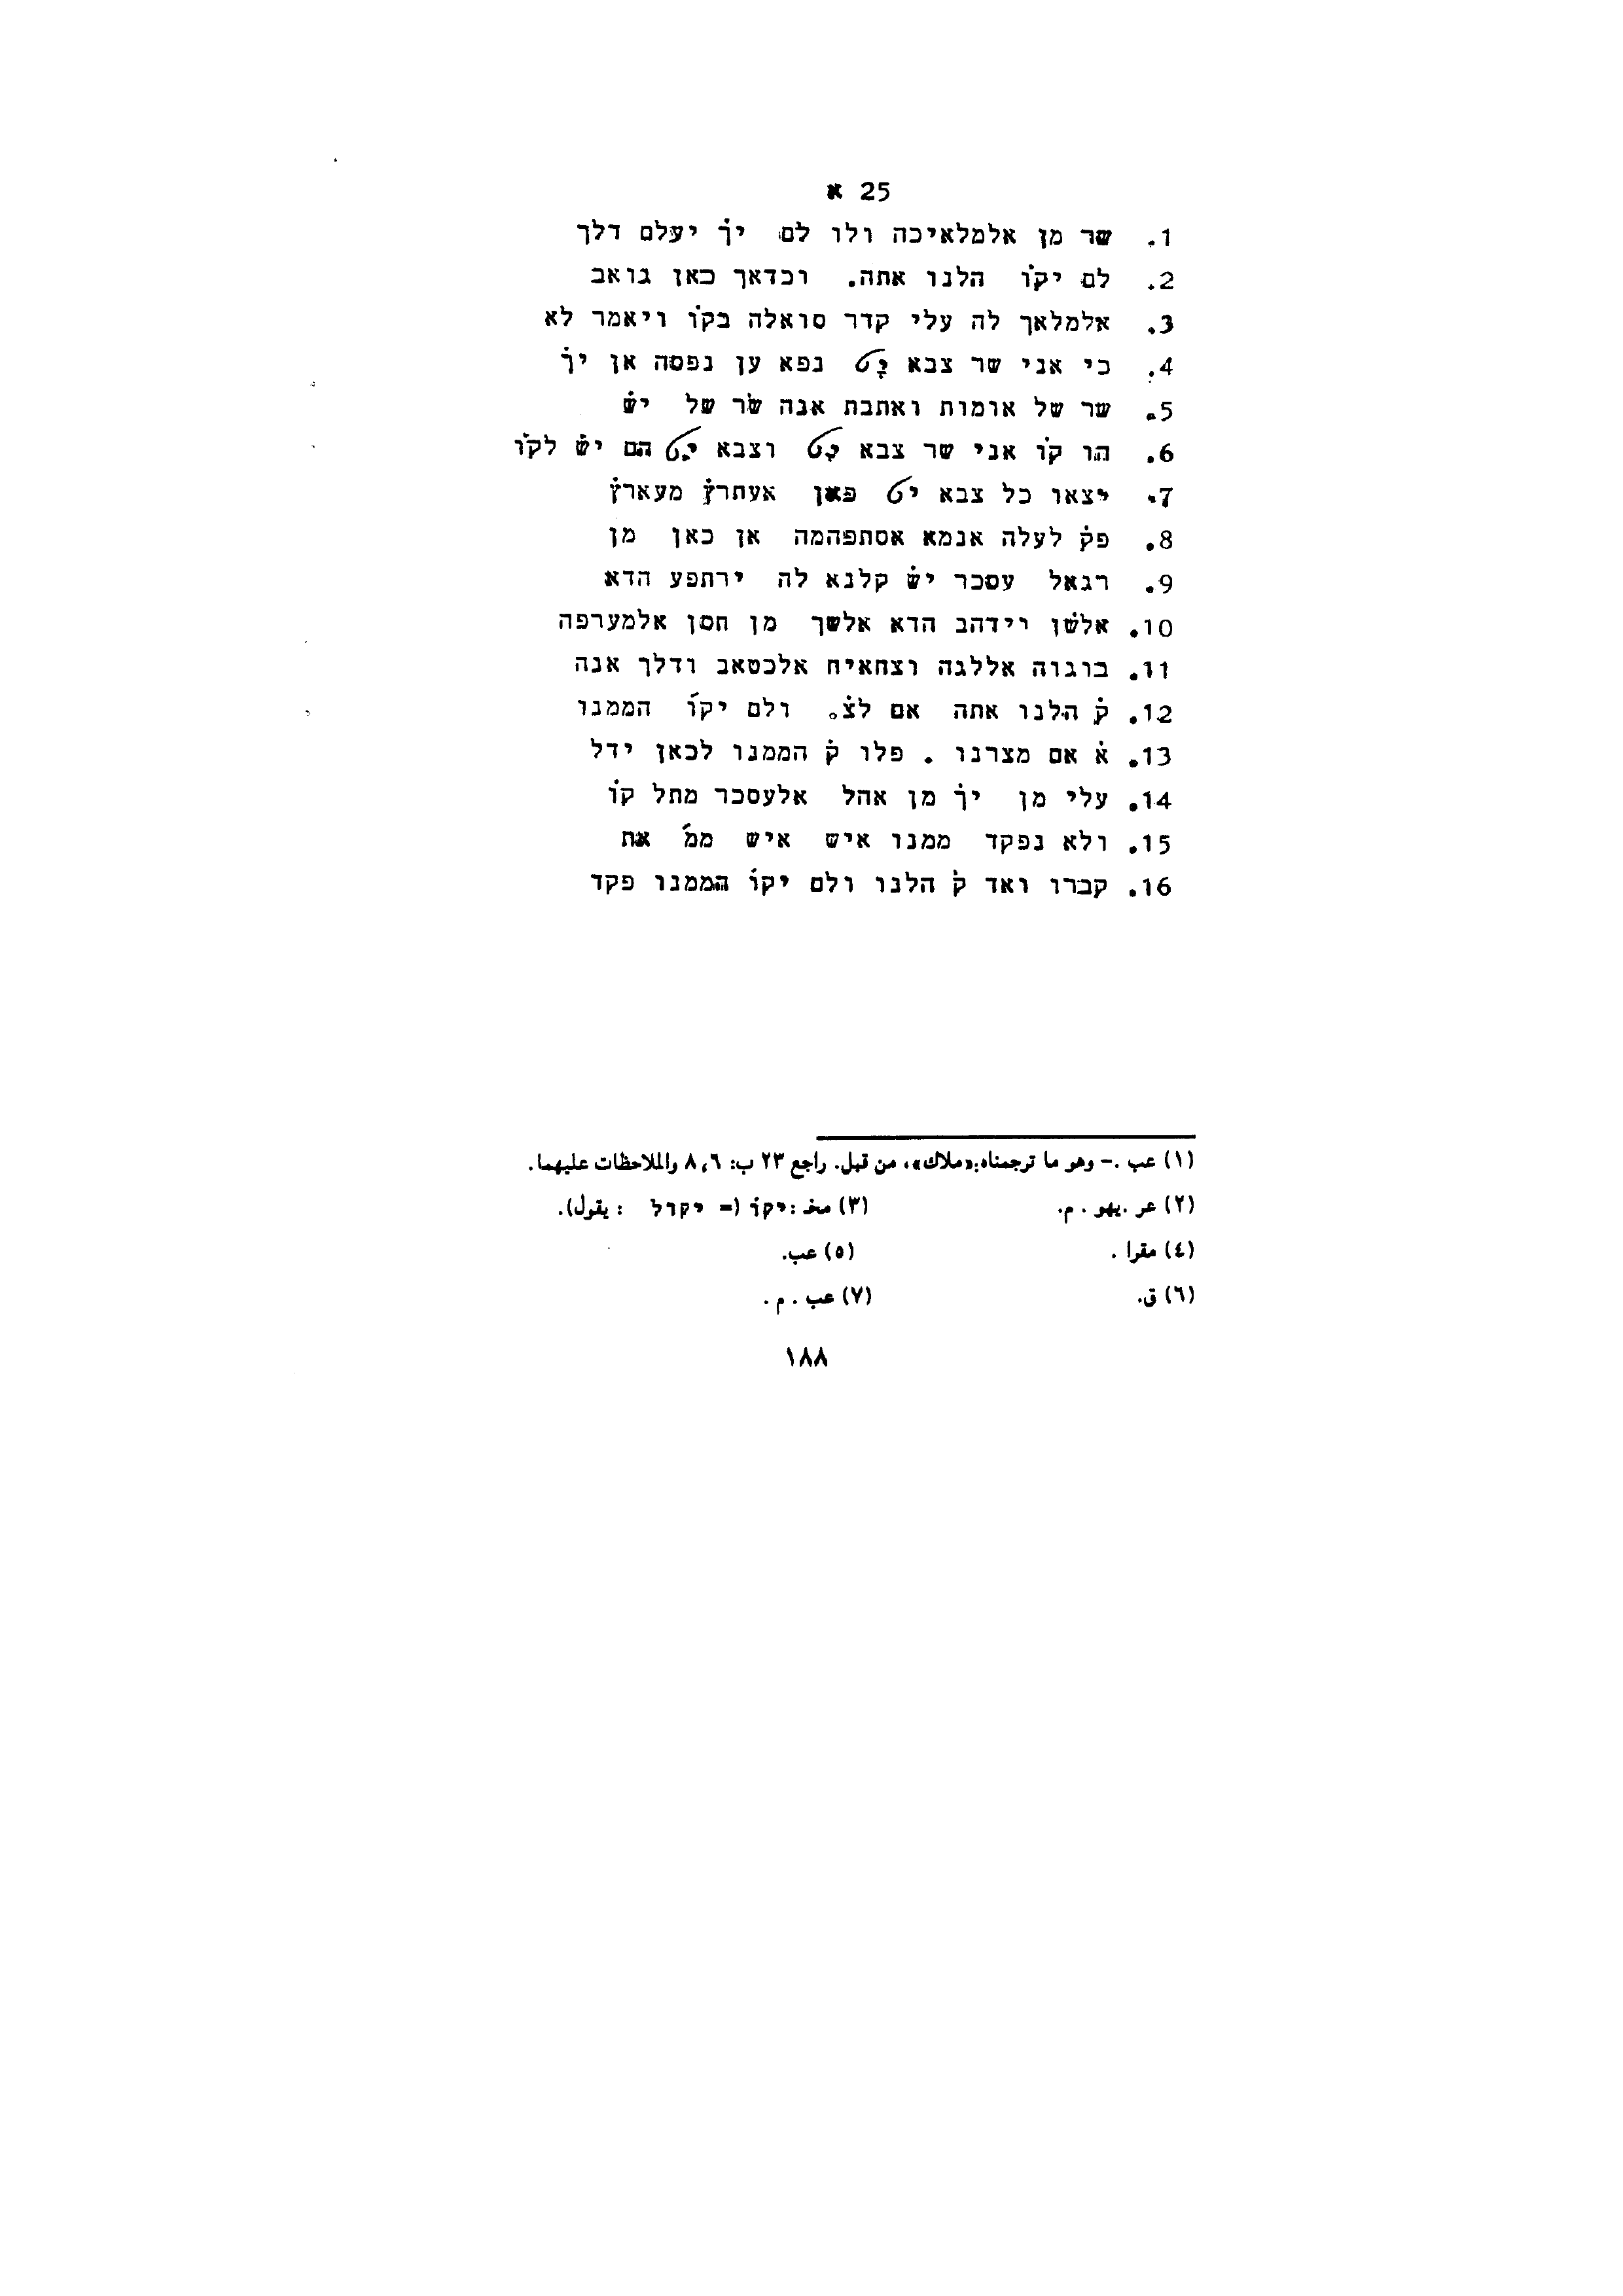 25 א
1. שר מן אלמלאיכה ולו לם יךֹ יעלם דלך
2. לם יקוֹ הלנו אתה. וכדאך כאן גואב
3. אלמלאך לה עלי קדר סואלה בקוֹ ויאמר לא
4. כי אני שר צבא נפא ען נפסה אן יךֹ
5. שר של אומות ואתבת אנה שר של ישֹ
6. הו קוֹ אני שר צבא וצבא הם ישֹ לקוֹ
7. יצאו כל צבא פאן אעתרץֹ מעארץֹ
8. פקֹ לעלה אנמא אסתפהמה אן כאן מן
9. רגאל עסכר ישֹ קלנא לה ירתפע הדא
10. אלשֹן וידהב הדא אלשך מן חסן אלמערפה
11. בוגוה אללגה וצחאיח אלכטאב ודלך אנה
12. קֹ הלנו אתה אם לצֹ. ולם יקוֹ הממנו
13. אֹ אם מצרנו . פלו קֹ הממנו לכאן ידל
14. עלי מן יךֹ מן אהל אלעסכר מתל קוֹ
15. ולא נפקד ממנו איש איש ממֹ את
16. קברו ואד קֹ הלנו ולם יקוֹ הממנו פקד
(١) عب .– وهو ما ترجمناه:«ملاك»، من قبل. راجع ٢٣ ب: ٨،٦ والملاحظات عليهما.
(٢) عر .يهو . م. (٣) مخـ :יקוֹ (= יקול : يقول).
(٤) مقرا . (٥) عب.
(٦) ق. (٧) عب . م .
١٨٨